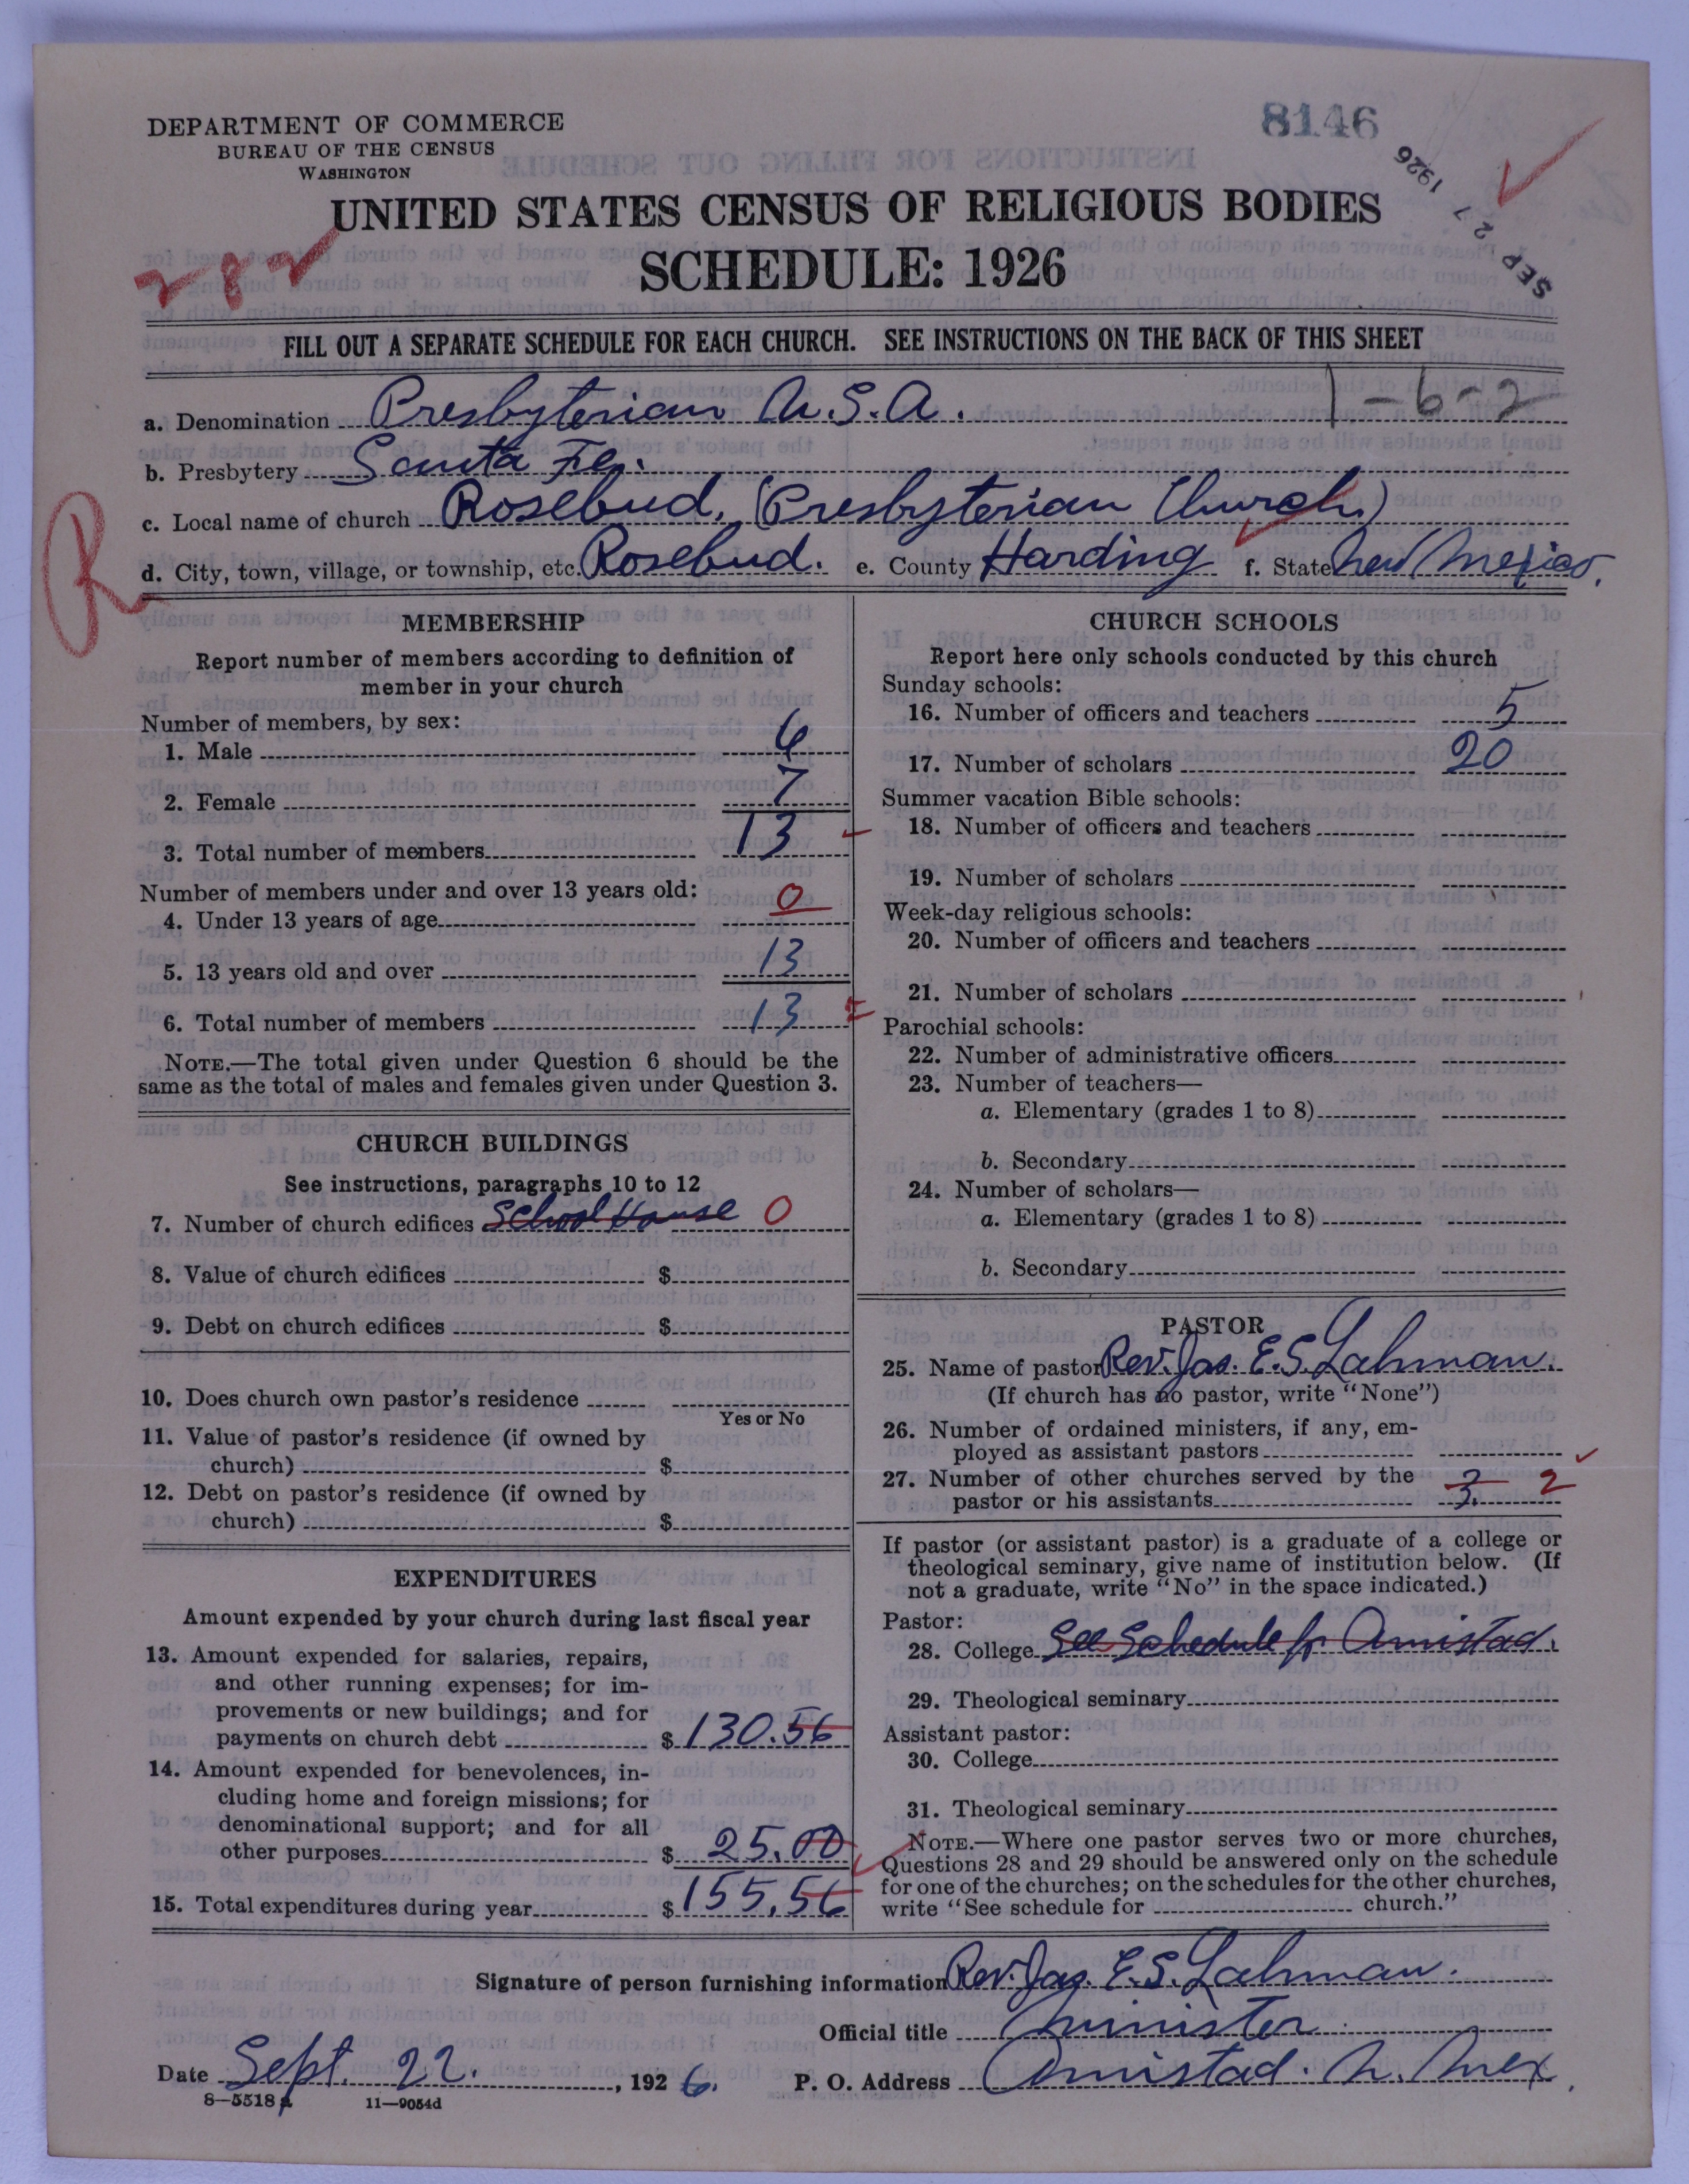 DEPARTMENT OF COMMERCE
BUREAU OF THE CENSUS
WASHINGTON
8146
SEP 27 1926
UNITED STATES CENSUS OF RELIGIOUS BODIES
282
SCHEDULE: 1926
FILL OUT A SEPARATE SCHEDULE FOR EACH CHURCH. SEE INSTRUCTIONS ON THE BACK OF THIS SHEET
a. Denomination Presbyterian U.S.A. 1-6-2
b. Presbytery Santa Fe.
c. Local name of church Rosebud, (Presbyterian Church)
R
d. City, town, village, or township, etc. Rosebud. e. County Harding f. State New Mexico.
MEMBERSHIP
Report number of members according to definition of
member in your church
Number of members, by sex:
1. Male 6
2. Female 7
3. Total number of members 13
Number of members under and over 13 years old:
4. Under 13 years of age 0
5. 13 years old and over 13
6. Total number of members 13
NOTE.—The total given under Question 6 should be the
same as the total of males and females given under Question 3.
CHURCH BUILDINGS
See instructions, paragraphs 10 to 12
7. Number of church edifices School House 0
8. Value of church edifices $
9. Debt on church edifices $
10. Does church own pastor's residence
Yes or No
11. Value of pastor's residence (if owned by
church) $
12. Debt on pastor's residence (if owned by
church) $
EXPENDITURES
Amount expended by your church during last fiscal year
13. Amount expended for salaries, repairs,
and other running expenses; for im-
provements or new buildings; and for
payments on church debt $ 130.56
14. Amount expended for benevolences, in-
cluding home and foreign missions; for
denominational support; and for all
other purposes $ 25.00
15. Total expenditures during year $ 155.56
CHURCH SCHOOLS
Report here only schools conducted by this church
Sunday schools:
16. Number of officers and teachers 5
17. Number of scholars 20
Summer vacation Bible schools:
18. Number of officers and teachers
19. Number of scholars
Week-day religious schools:
20. Number of officers and teachers
21. Number of scholars
Parochial schools:
22. Number of administrative officers
23. Number of teachers—
a. Elementary (grades 1 to 8)
b. Secondary
24. Number of scholars—
a. Elementary (grades 1 to 8)
b. Secondary
PASTOR
25. Name of pastor Rev. Jas. E. S. Lahman.
(If church has no pastor, write "None")
26. Number of ordained ministers, if any, em-
ployed as assistant pastors
27. Number of other churches served by the
pastor or his assistants 3. 2
If pastor (or assistant pastor) is a graduate of a college or
theological seminary, give name of institution below. (If
not a graduate, write "No" in the space indicated.)
Pastor:
28. College See Schedule for Amistad.
29. Theological seminary
Assistant pastor:
30. College
31. Theological seminary
NOTE.—Where one pastor serves two or more churches,
Questions 28 and 29 should be answered only on the schedule
for one of the churches; on the schedules for the other churches,
write "See schedule for church."
Signature of person furnishing information Rev. Jas. E. S. Lahman.
Official title Minister
Date Sept. 22. , 1926. P. O. Address Amistad. N. Mex.
8—5518a 11—9054d